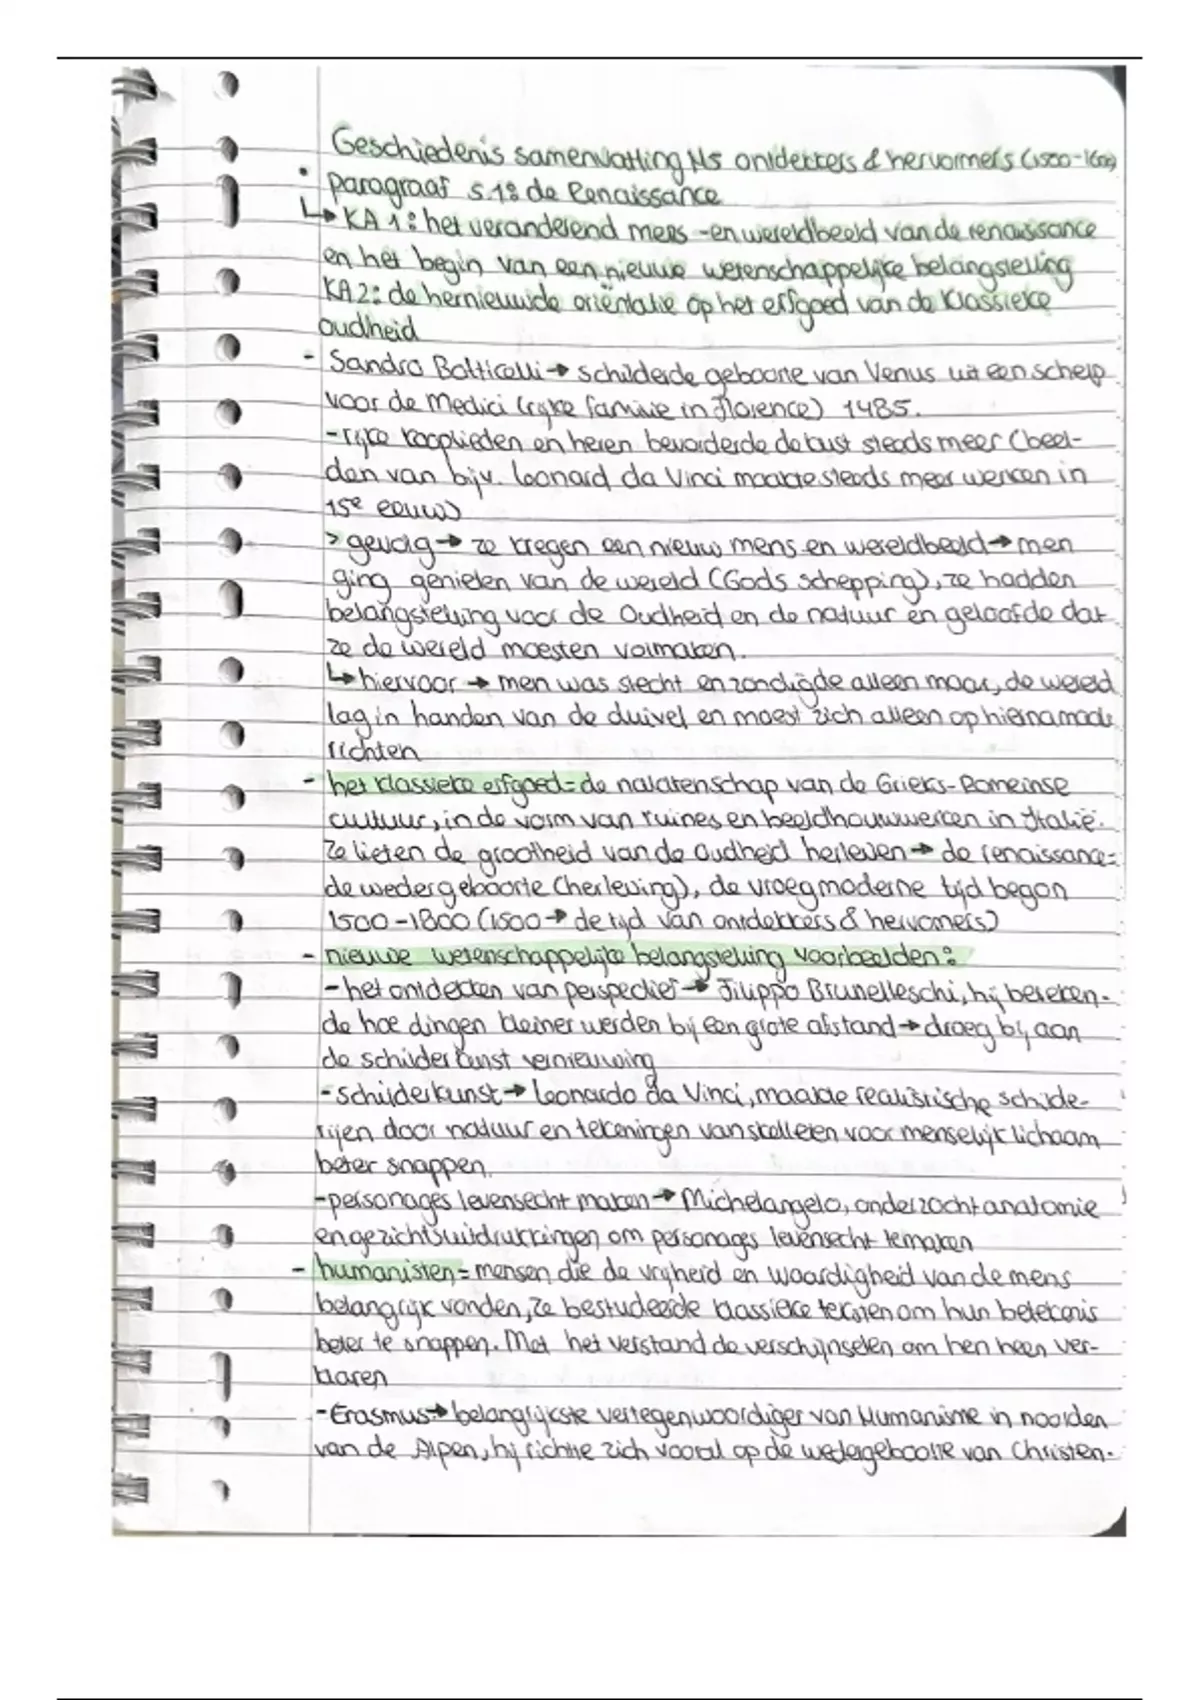 Geschiedenis samenvatting H5 ontdekkers & hervormers (1500-1600)
• paragraaf 5.1: de Renaissance
↳ KA 1: het veranderend mens -en wereldbeeld van de renaissance
en het begin van een nieuwe wetenschappelijke belangstelling
KA2: de hernieuwde oriëntatie op het erfgoed van de klassieke
oudheid
- Sandro Botticelli → schilderde geboorte van Venus uit een schelp
voor de Medici (rijke familie in Florence) 1485.
- rijke kooplieden en heren bevorderde de kust steeds meer (beel-
den van bijv. Leonard da Vinci maakte steeds meer werken in
15e eeuw)
> gevolg → ze kregen een nieuw mens en wereldbeeld → men
ging genieten van de wereld (Gods schepping), ze hadden
belangstelling voor de Oudheid en de natuur en geloofde dat
ze de wereld moesten volmaken.
↳ hiervoor → men was slecht en zondigde alleen maar, de wereld
lag in handen van de duivel en moest zich alleen op hiernamaals
richten
- het klassieke erfgoed = de nalatenschap van de Grieks-Romeinse
cultuur, in de vorm van ruines en beeldhouwwerken in Italië.
Ze lieten de grootheid van de Oudheid herleven → de renaissance =
de wedergeboorte (herleving), de vroegmoderne tijd begon
1500-1800 (1500 → de tijd van ontdekkers & hervomers)
- nieuwe wetenschappelijke belangstelling voorbeelden:
- het ontdekken van perspectief → Filippo Brunelleschi, hij bereken-
de hoe dingen kleiner werden bij een grote afstand → droeg bij aan
de schilderkunst vernieuwing
- schilderkunst → Leonardo da Vinci, maakte realistische schilde-
rijen door natuur en tekeningen van skelleten voor menselijk lichaam
beter snappen.
- personages levensecht maken → Michelangelo, onderzocht anatomie
en gezichtsuitdrukkingen om personages levensecht te maken
- humanisten = mensen die de vrijheid en waardigheid van de mens
belangrijk vonden, ze bestudeerde klassieke teksten om hun betekenis
beter te snappen. Met het verstand de verschijnselen om hen heen ver-
klaren
- Erasmus → belangrijkste vertegenwoordiger van Humanisme in noorden
van de Alpen, hij richtte zich vooral op de wedergeboorte van Christen-